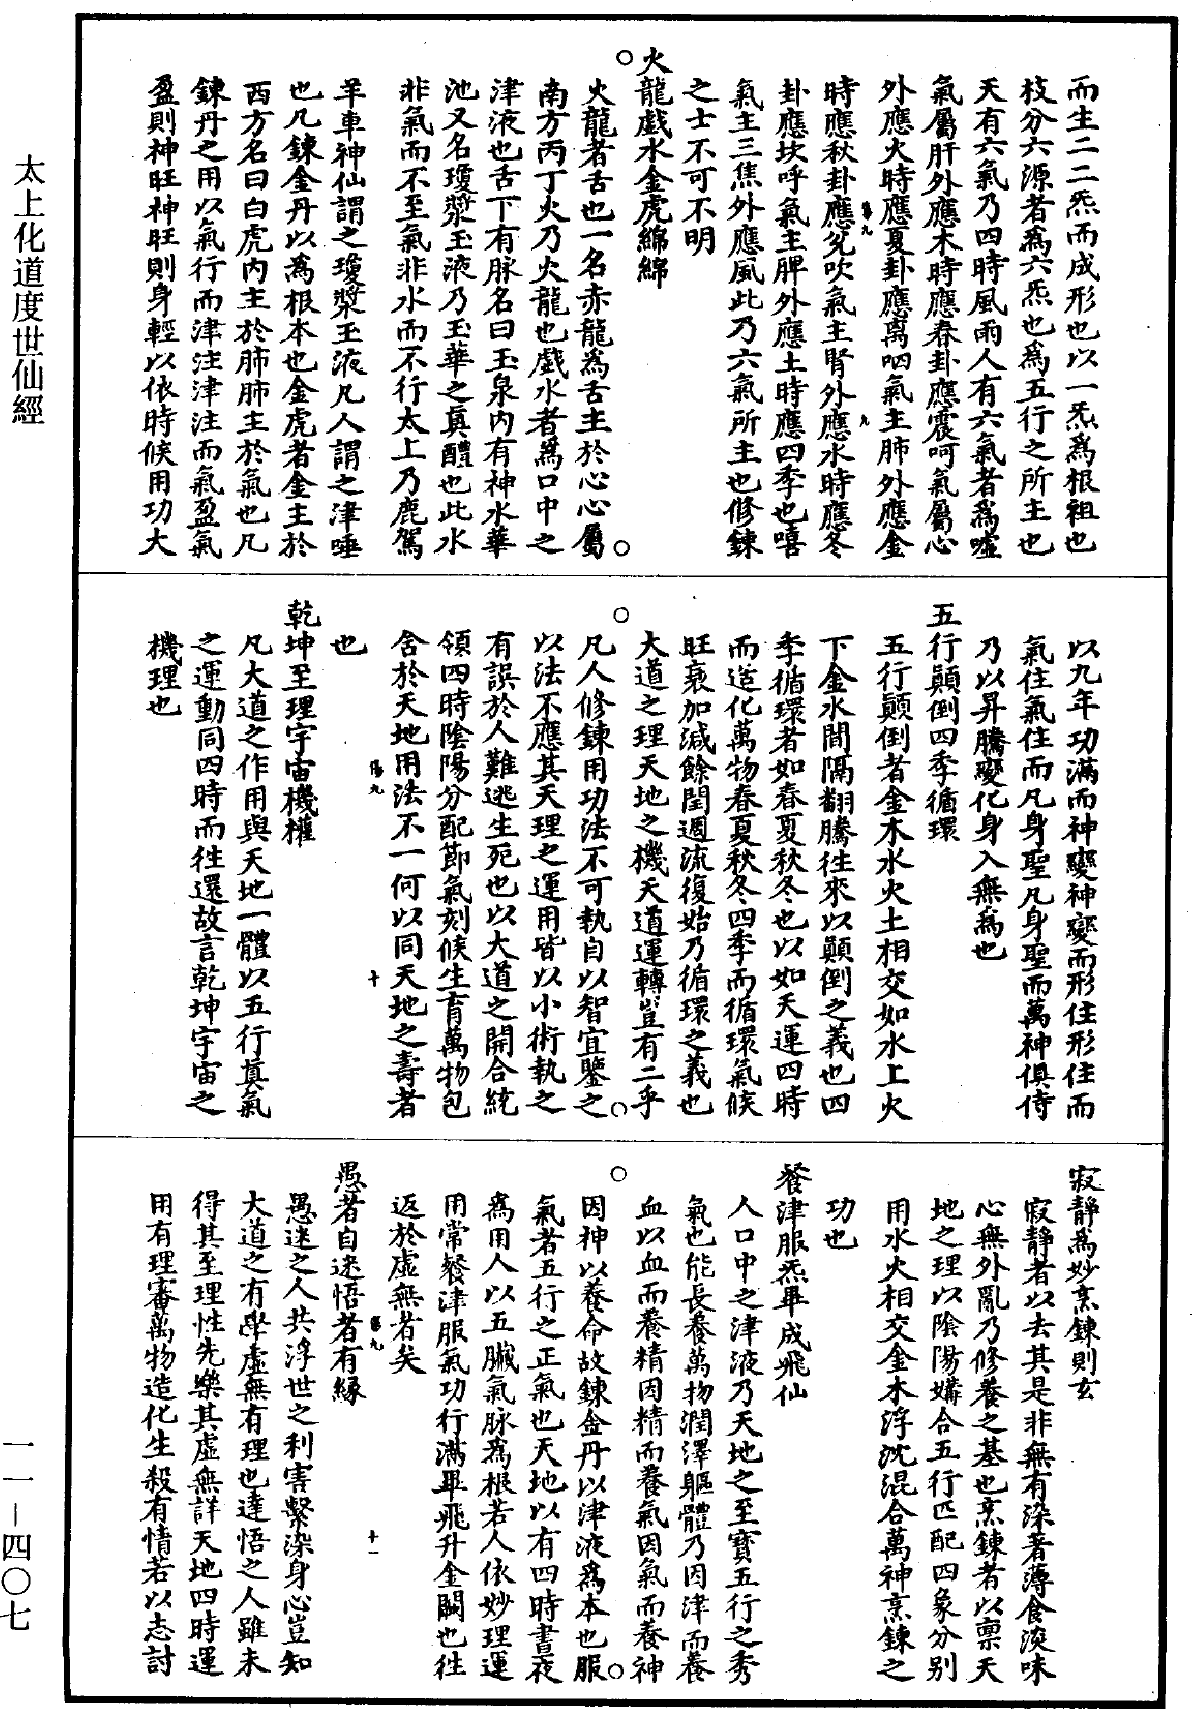 太上化道度世仙經
而生二二炁而成形也以一炁為根祖也
枝分六源者為六炁也為五行之所主也
天有六氣乃四時風雨人有六氣者為噓
氣屬肝外應木時應春卦應震呵氣屬心
外應火時應夏卦應离呬氣主肺外應金
時應秋卦應兊吹氣主腎外應水時應冬
卦應坎呼氣主脾外應土時應四季也嘻
氣主三焦外應風此乃六氣所主也修鍊
之士不可不明
火龍戲水金虎綿綿
火龍者舌也一名赤龍為舌主於心心屬
南方丙丁火乃火龍也戲水者為口中之
津液也舌下有脉名曰玉泉內有神水華
池又名瓊漿玉液乃玉華之真醴也此水
非氣而不至氣非水而不行太上乃鹿駕
羊車神仙謂之瓊漿玉液凡人謂之津唾
也凡鍊金丹以為根本也金虎者金主於
西方名曰白虎內主於肺肺主於氣也凡
鍊丹之用以氣行而津注津注而氣盈氣
盈則神旺神旺則身輕以依時候用功大
以九年功滿而神變神變而形住形住而
氣住氣住而凡身聖凡身聖而萬神俱侍
乃以昇騰變化身入無為也
五行顛倒四季循環
五行顛倒者金木水火土相交如水上火
下金水間隔翻騰往來以顛倒之義也四
季循環者如春夏秋冬也以如天運四時
而造化萬物春夏秋冬四季而循環氣候
旺衰加減餘閏週流復始乃循環之義也
大道之理天地之機天道運轉豈有二乎
凡人修鍊用功法不可執自以智宜鑒之
以法不應其天理之運用皆以小術執之
有誤於人難逃生死也以大道之開合統
領四時陰陽分配節氣刻候生育萬物包
含於天地用法不一何以同天地之壽者
也
乾坤至理宇宙機權
凡大道之作用與天地一體以五行真氣
之運動同四時而往還故言乾坤宇宙之
機理也
寂靜為妙烹鍊則玄
寂靜者以去其是非無有染著薄食淡味
心無外亂乃修養之基也烹鍊者以稟天
地之理以陰陽媾合五行匹配四象分別
用水火相交金木浮沈混合萬神烹鍊之
功也
餐津服炁畢成飛仙
人口中之津液乃天地之至寶五行之秀
氣也能長養萬物潤澤軀體乃因津而養
血以血而養精因精而養氣因氣而養神
因神以養命故鍊金丹以津液為本也服
氣者五行之正氣也天地以有四時晝夜
為用人以五臟氣脉為根若人依妙理運
用常餐津服氣功行滿畢飛升金闕也往
返於虛無者矣
愚者自迷悟者有緣
愚迷之人共浮世之利害繫染身心豈知
大道之有學虛無有理也達悟之人雖未
得其至理性先樂其虛無詳天地四時運
用有理審萬物造化生殺有情若以志討
一一－四〇七